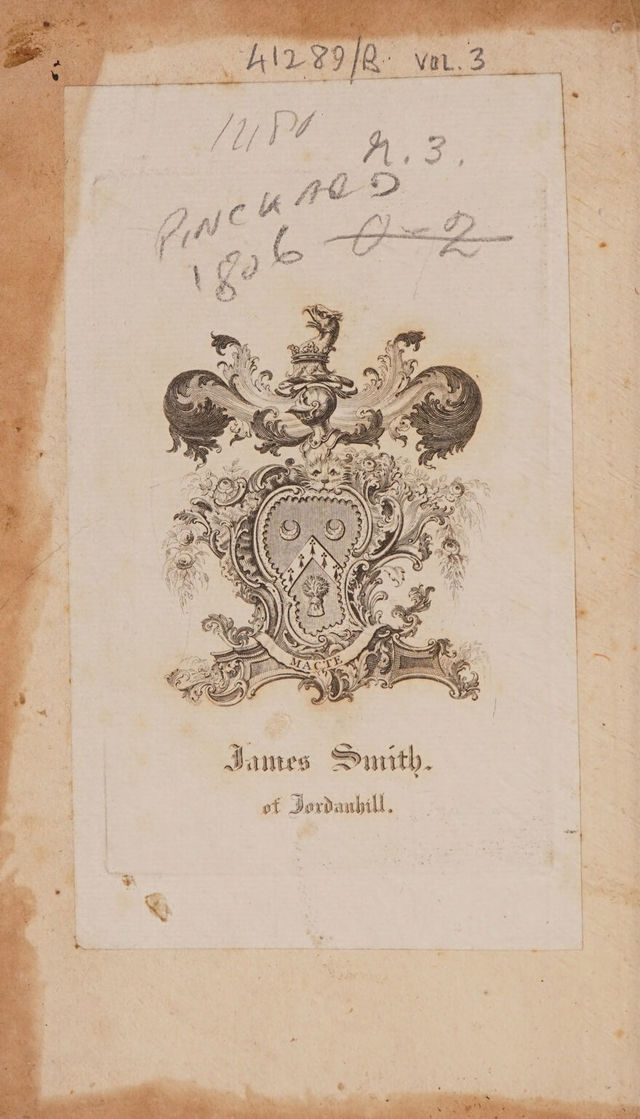 41289/B VOL. 3
PINCKARD
1806
MACTE
James Smith.
of Jordanhill.